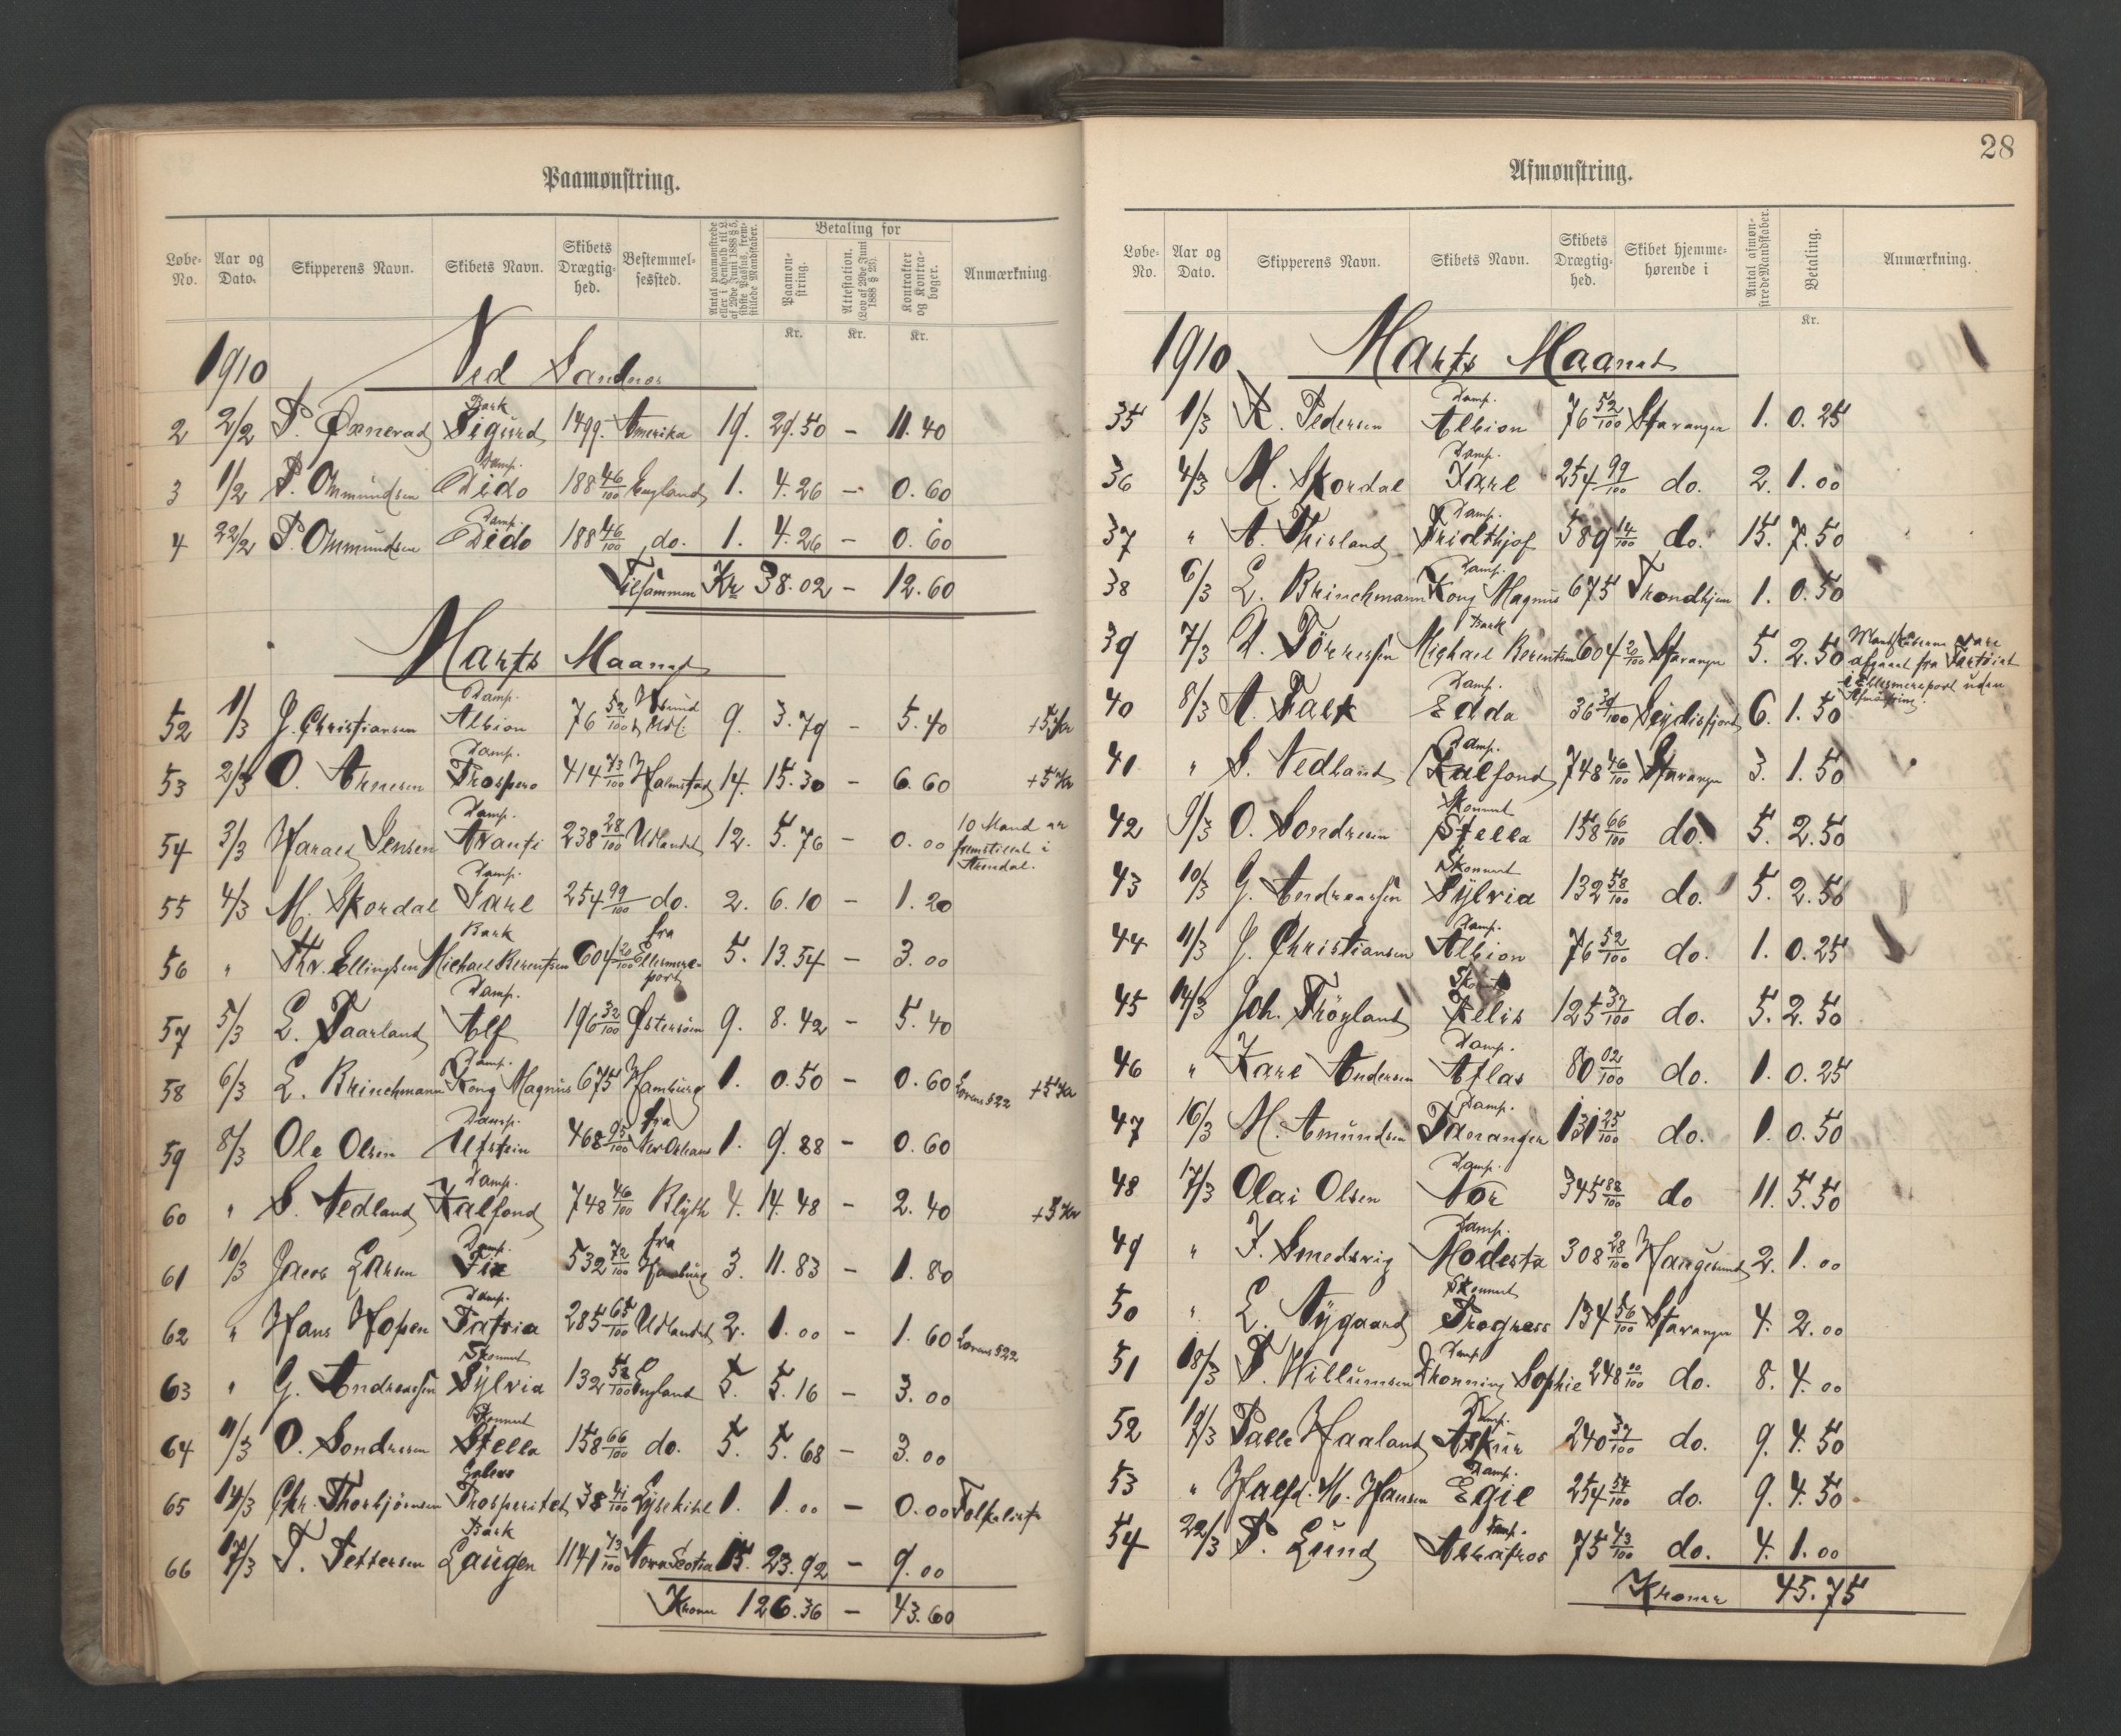 Paamønstring.
Løbe-No. Aar og Dato. Skipperens Navn. Skibets Navn. Skibets Drægtighed. Bestemmelsessted. Betaling for Paamønstring. Attestation. (Lov af 29de Juni 1888 § 28). Kontrakter og Kontrabøger. Anmærkning.
Kr. Kr. Kr.
1910 Ved Sandnes
2 2/2 P. Øxnevad Bark Sigurd 1499. Amerika 19. 29.50 — 11.40
3 1/2 P. Ommundsen Damp. Dido 188 46/100 England 1. 4.26 — 0.60
4 22/2 P. Ommundsen Damp. Dido 188 46/100 do. 1. 4.26 — 0.60
Tilsammen Kr 38.02 — 12.60
Marts Maaned
52 1/3 J. Christiansen Damp. Albion 76 52/100 9. 3.79 — 5.40 +5 Kr
53 2/3 O. Arnesen Damp. Prospero 414 73/100 Halmstad 14. 15.30 — 6.60 +5 Kr
54 3/3 Harald Jensen Damp. Avanti 238 28/100 Udlandet 12. 5.76 — 0.00 10 Mand er fremstillet i Arendal.
55 4/3 M. Skordal Damp. Jarl 254 99/100 do. 2. 6.10 — 1.20
56 " Thv. Ellingsen Bark Michael Berentsen 604 20/100 fra Ellesmereport 5. 13.54 — 3.00
57 5/3 L. Taarland Damp. Alf 196 32/100 Østersøen 9. 8.42 — 5.40
58 6/3 L. Brinchmann Damp. Kong Magnus 675 Hamburg 1. 0.50 — 0.60 Lovens § 22 +5 Kr
59 8/3 Ole Olsen Damp. Utstein 468 95/100 fra New Orleans 1. 9.88 — 0.60
60 " S. Nedland Damp. Kalfond 748 46/100 Blyth 4. 14.48 — 2.40 +5 Kr
61 10/3 Jacob Larsen Damp. Fix 532 72/100 fra Hamburg 3. 11.83 — 1.80
62 " Hans Hopen Damp. Patria 285 65/100 Udlandet 2. 1.00 — 1.60 Lovens § 22
63 " G. Andreassen Skonnert Sylvia 132 58/100 England 5. 5.16 — 3.00
64 11/3 O. Sondresen Skonnert Stella 158 66/100 do. 5. 5.68 — 3.00
65 14/3 Chr. Thorbjørnsen Galeas Prosperitet 38 41/100 Lysekihl 1. 1.00 — 0.00 Folkeliste
66 17/3 T. Pettersen Bark Laugen 1141 73/100 Nova Scotia 15. 23.92 — 9.00
Kroner 126.36 — 43.60
28
Afmønstring.
Løbe-No. Aar og Dato. Skipperens Navn. Skibets Navn. Skibets Drægtighed. Skibet hjemmehørende i Antal afmønstrede Mandskaber. Betaling. Anmærkning.
Kr.
1910 Marts Maaned
35 1/3 R. Pedersen Damp. Albion 76 52/100 Stavanger 1. 0.25
36 4/3 M. Skordal Damp. Jarl 254 99/100 do. 2. 1.00
37 " A. Thisland Damp. Fridthjof 589 14/100 do. 15. 7.50
38 6/3 L. Brinchmann Damp. Kong Magnus 675 Trondhjem 1. 0.50
39 7/3 Törressen Bark Michael Berentsen 604 20/100 Stavanger 5. 2.50 Mandskaberne vare afgaaet fra Fartøiet i Ellesmereport uden Afmønstring.
40 8/3 A. Falk Damp. Edda 36 Seydisfjord 6. 1.50
41 " S. Nedland Damp. Kalfond 748 46/100 Stavanger 3. 1.50
42 9/3 O. Sondresen Skonnert Stella 158 66/100 do. 5. 2.50
43 10/3 G. Andreassen Skonnert Sylvia 132 58/100 do. 5. 2.50
44 11/3 J. Christiansen Damp. Albion 76 52/100 do. 1. 0.25
45 14/3 Joh. Tröyland 125 37/100 do. 5. 2.50
46 " Karl Andersen Damp. Atlas 80 02/100 do. 1. 0.25
47 16/3 M. Amundsen Damp. Taoranger 131 25/100 do. 1. 0.50
48 17/3 Olai Olsen Damp. Nor 345 88/100 do 11. 5.50
49 " J. Smedsvig Damp. Modesta 308 28/100 Haugesund 2. 1.00
50 " L. Nygaard Skonnert Progress 134 56/100 Stavanger 4. 2.00
51 18/3 P. Willumsen Damp Dronning Sophie 248 00/100 do. 8. 4.00
52 19/3 Palle Haaland Damp. Askur 240 37/100 do. 9. 4.50
53 " Halfd. M. Hansen Damp. Egil 254 54/100 do. 9. 4.50
54 22/3 P. Lund Damp. Albatros 75 43/100 do. 4. 1.00
Kroner 45.75